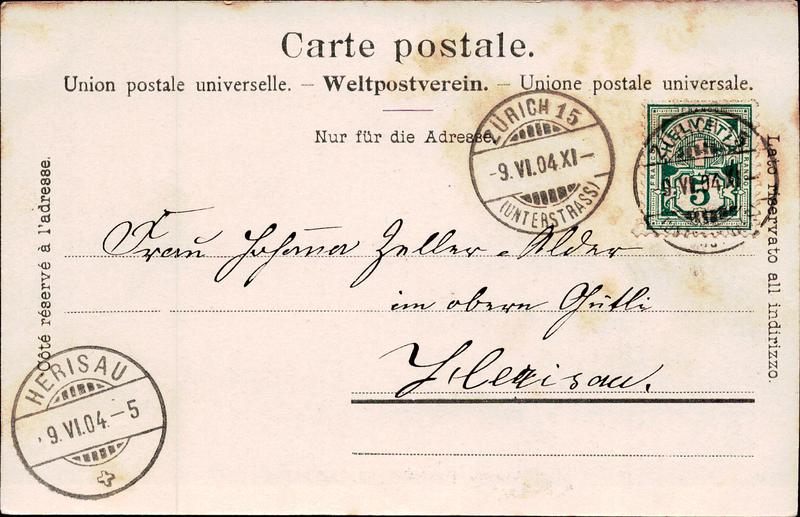 Carte postale.
Union postale universelle. – Weltpostverein. – Unione postale universale.
Nur für die Adresse.
Côté réservé à l'adresse.
Lato riservato all indirizzo.
ZÜRICH 15
-9.VI.04.XI-
(UNTERSTRASS)
HELVETIA
FRANCO
5
FRANCO
9.VI.04.XI
Frau Johanna Zeller-Alder
im obern Gütli
Herisau.
HERISAU
9.VI.04.-5